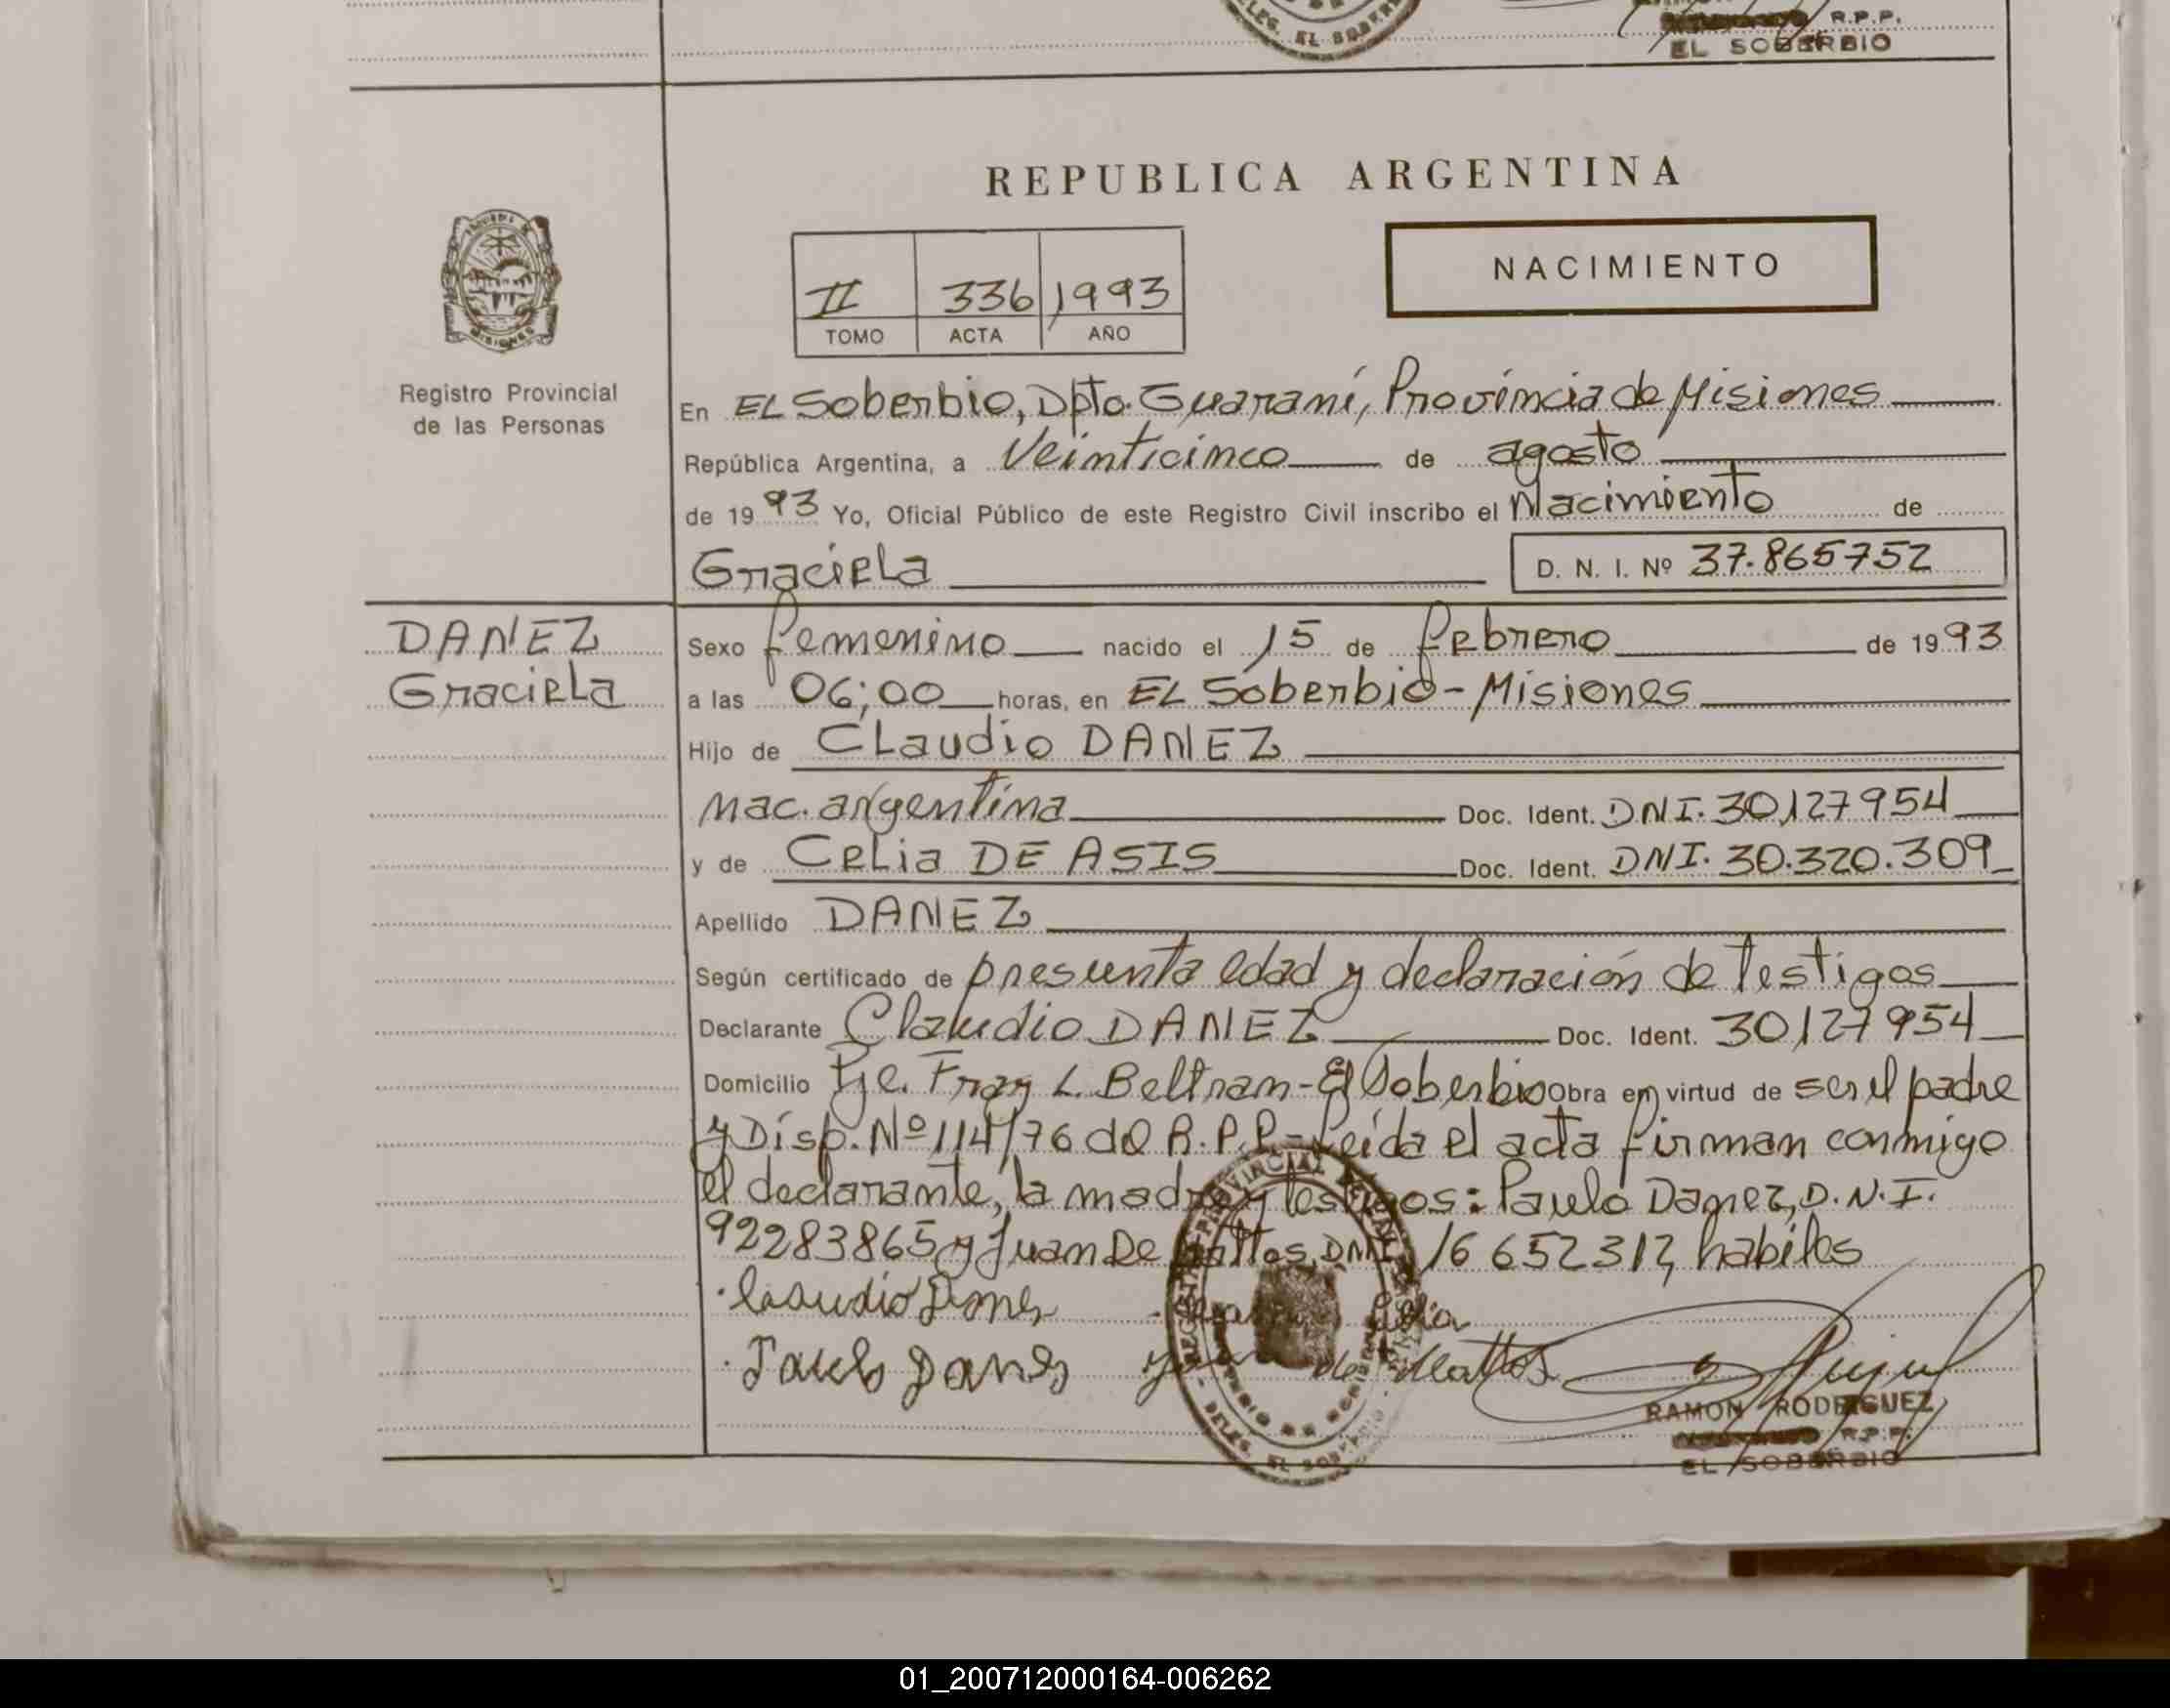 DELEG. EL SOBERBIO
R.P.P.
EL SOBERBIO
REPUBLICA ARGENTINA
NACIMIENTO
II 336 1993
TOMO ACTA AÑO
MISIONES
Registro Provincial
de las Personas
En EL Soberbio, Dpto. Guaraní, Província de Misiones
República Argentina, a Veinticinco de agosto
de 1993 Yo, Oficial Público de este Registro Civil inscribo el Nacimiento de
Graciela D. N. I. Nº 37.865752
DANEZ
Graciela
Sexo femenino nacido el 15 de febrero de 1993
a las 06;00 horas, en EL Soberbio - Misiones
Hijo de CLaudio DANEZ
nac. argentina Doc. Ident. DNI. 30,127954
y de Celia DE ASIS Doc. Ident. DNI. 30.320.309
Apellido DANEZ
Según certificado de presunta edad y declaración de testigos
Declarante Claudio DANEZ Doc. Ident. 30,127954
Domicilio Pje. Fray L. Beltran - El Soberbio obra en virtud de ser el padre
y Disp. Nº 114/76 del R.P.P. - Leída el acta firman conmigo
el declarante, la madre y testigos: Paulo Danez, D.N.I.
92283865 y Juan De Mattos, DNI. 16 652312, habiles
Claudio Danez Celia
Paulo Danez de Mattos
REGISTRO PROVINCIAL DE LAS PERSONAS
DELEG. EL SOBERBIO
RAMON RODRIGUEZ
R.P.P.
EL SOBERBIO
01_200712000164-006262